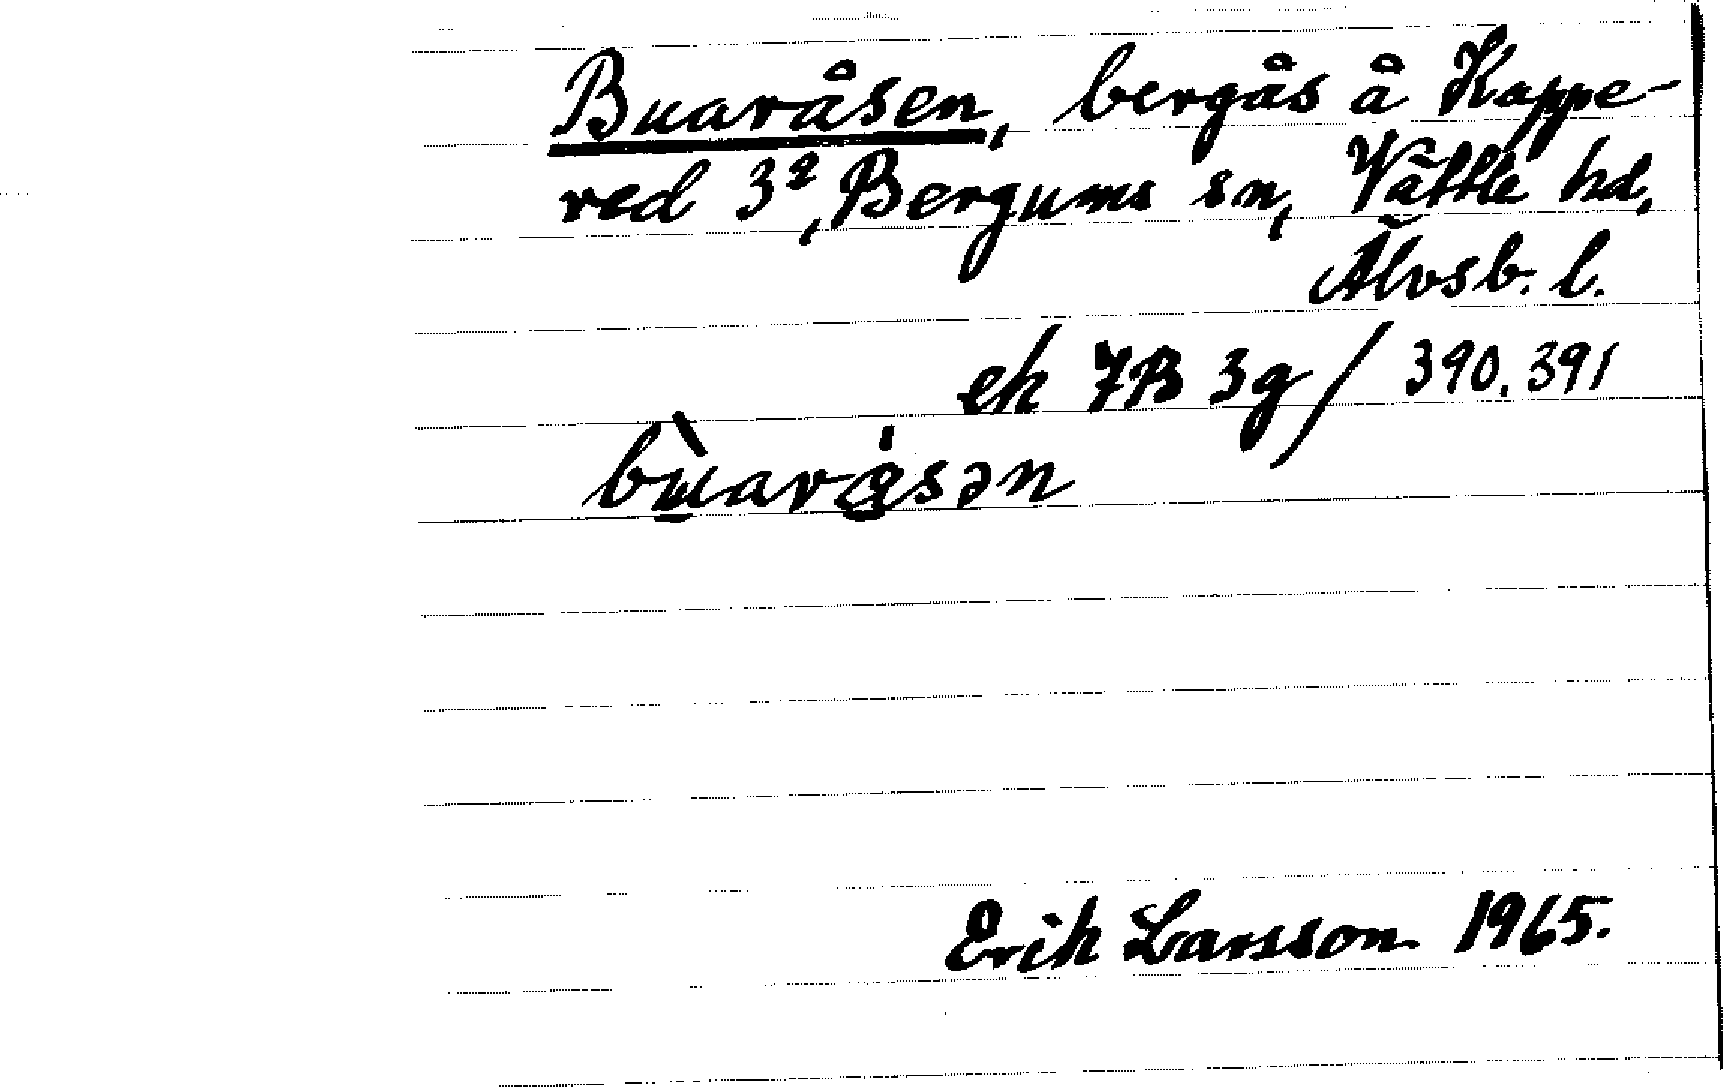 Buaråsen, bergås å Kappe-
red 3², Bergums sn, Vättle hd,
Älvsb. l.
ek 7B 3g / 390, 391
bu̠̇̀aråsən
Erik Larsson 1965.